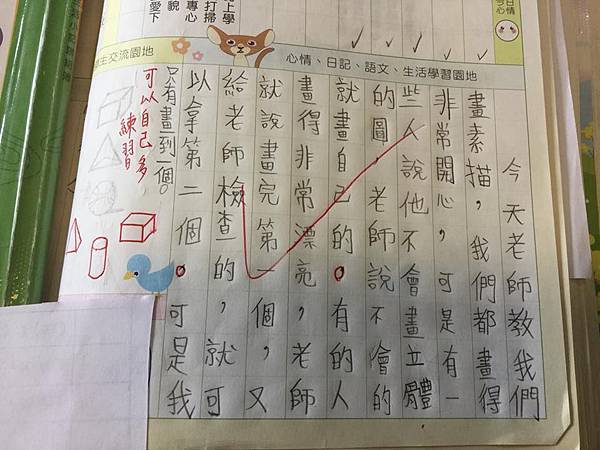 今日
心情
上學
打掃
專心
貌
愛下
心情、日記、語文、生活學習園地
生交流園地
今天老師教我們
畫素描,我們都畫得
非常開心,可是有一
些人說他不會畫立體
的圖,老師說不會的
就畫自己的。有的人
畫得非常漂亮,老師
就說畫完第一個,又
給老師檢查的,就可
以拿第二個。可是我
只有畫到一個。
可以自己多
練習